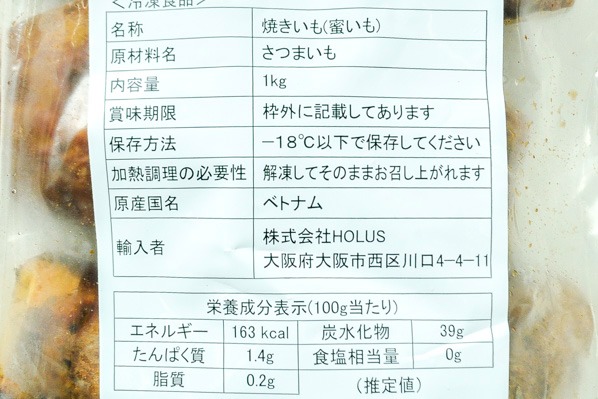 <冷凍食品>
名称 焼きいも(蜜いも)
原材料名 さつまいも
内容量 1kg
賞味期限 枠外に記載してあります
保存方法 −18℃以下で保存してください
加熱調理の必要性 解凍してそのままお召し上がれます
原産国名 ベトナム
輸入者 株式会社HOLUS
大阪府大阪市西区川口4-4-11
栄養成分表示(100g当たり)
エネルギー 163 kcal 炭水化物 39g
たんぱく質 1.4g 食塩相当量 0g
脂質 0.2g (推定値)